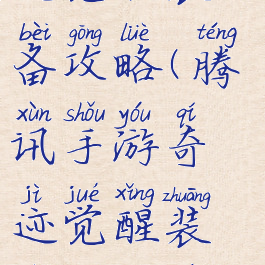 bèi gōng lüè téng
备攻略(腾
xùn shǒu yóu qí
讯手游奇
jì jué xǐng zhuāng
迹觉醒装